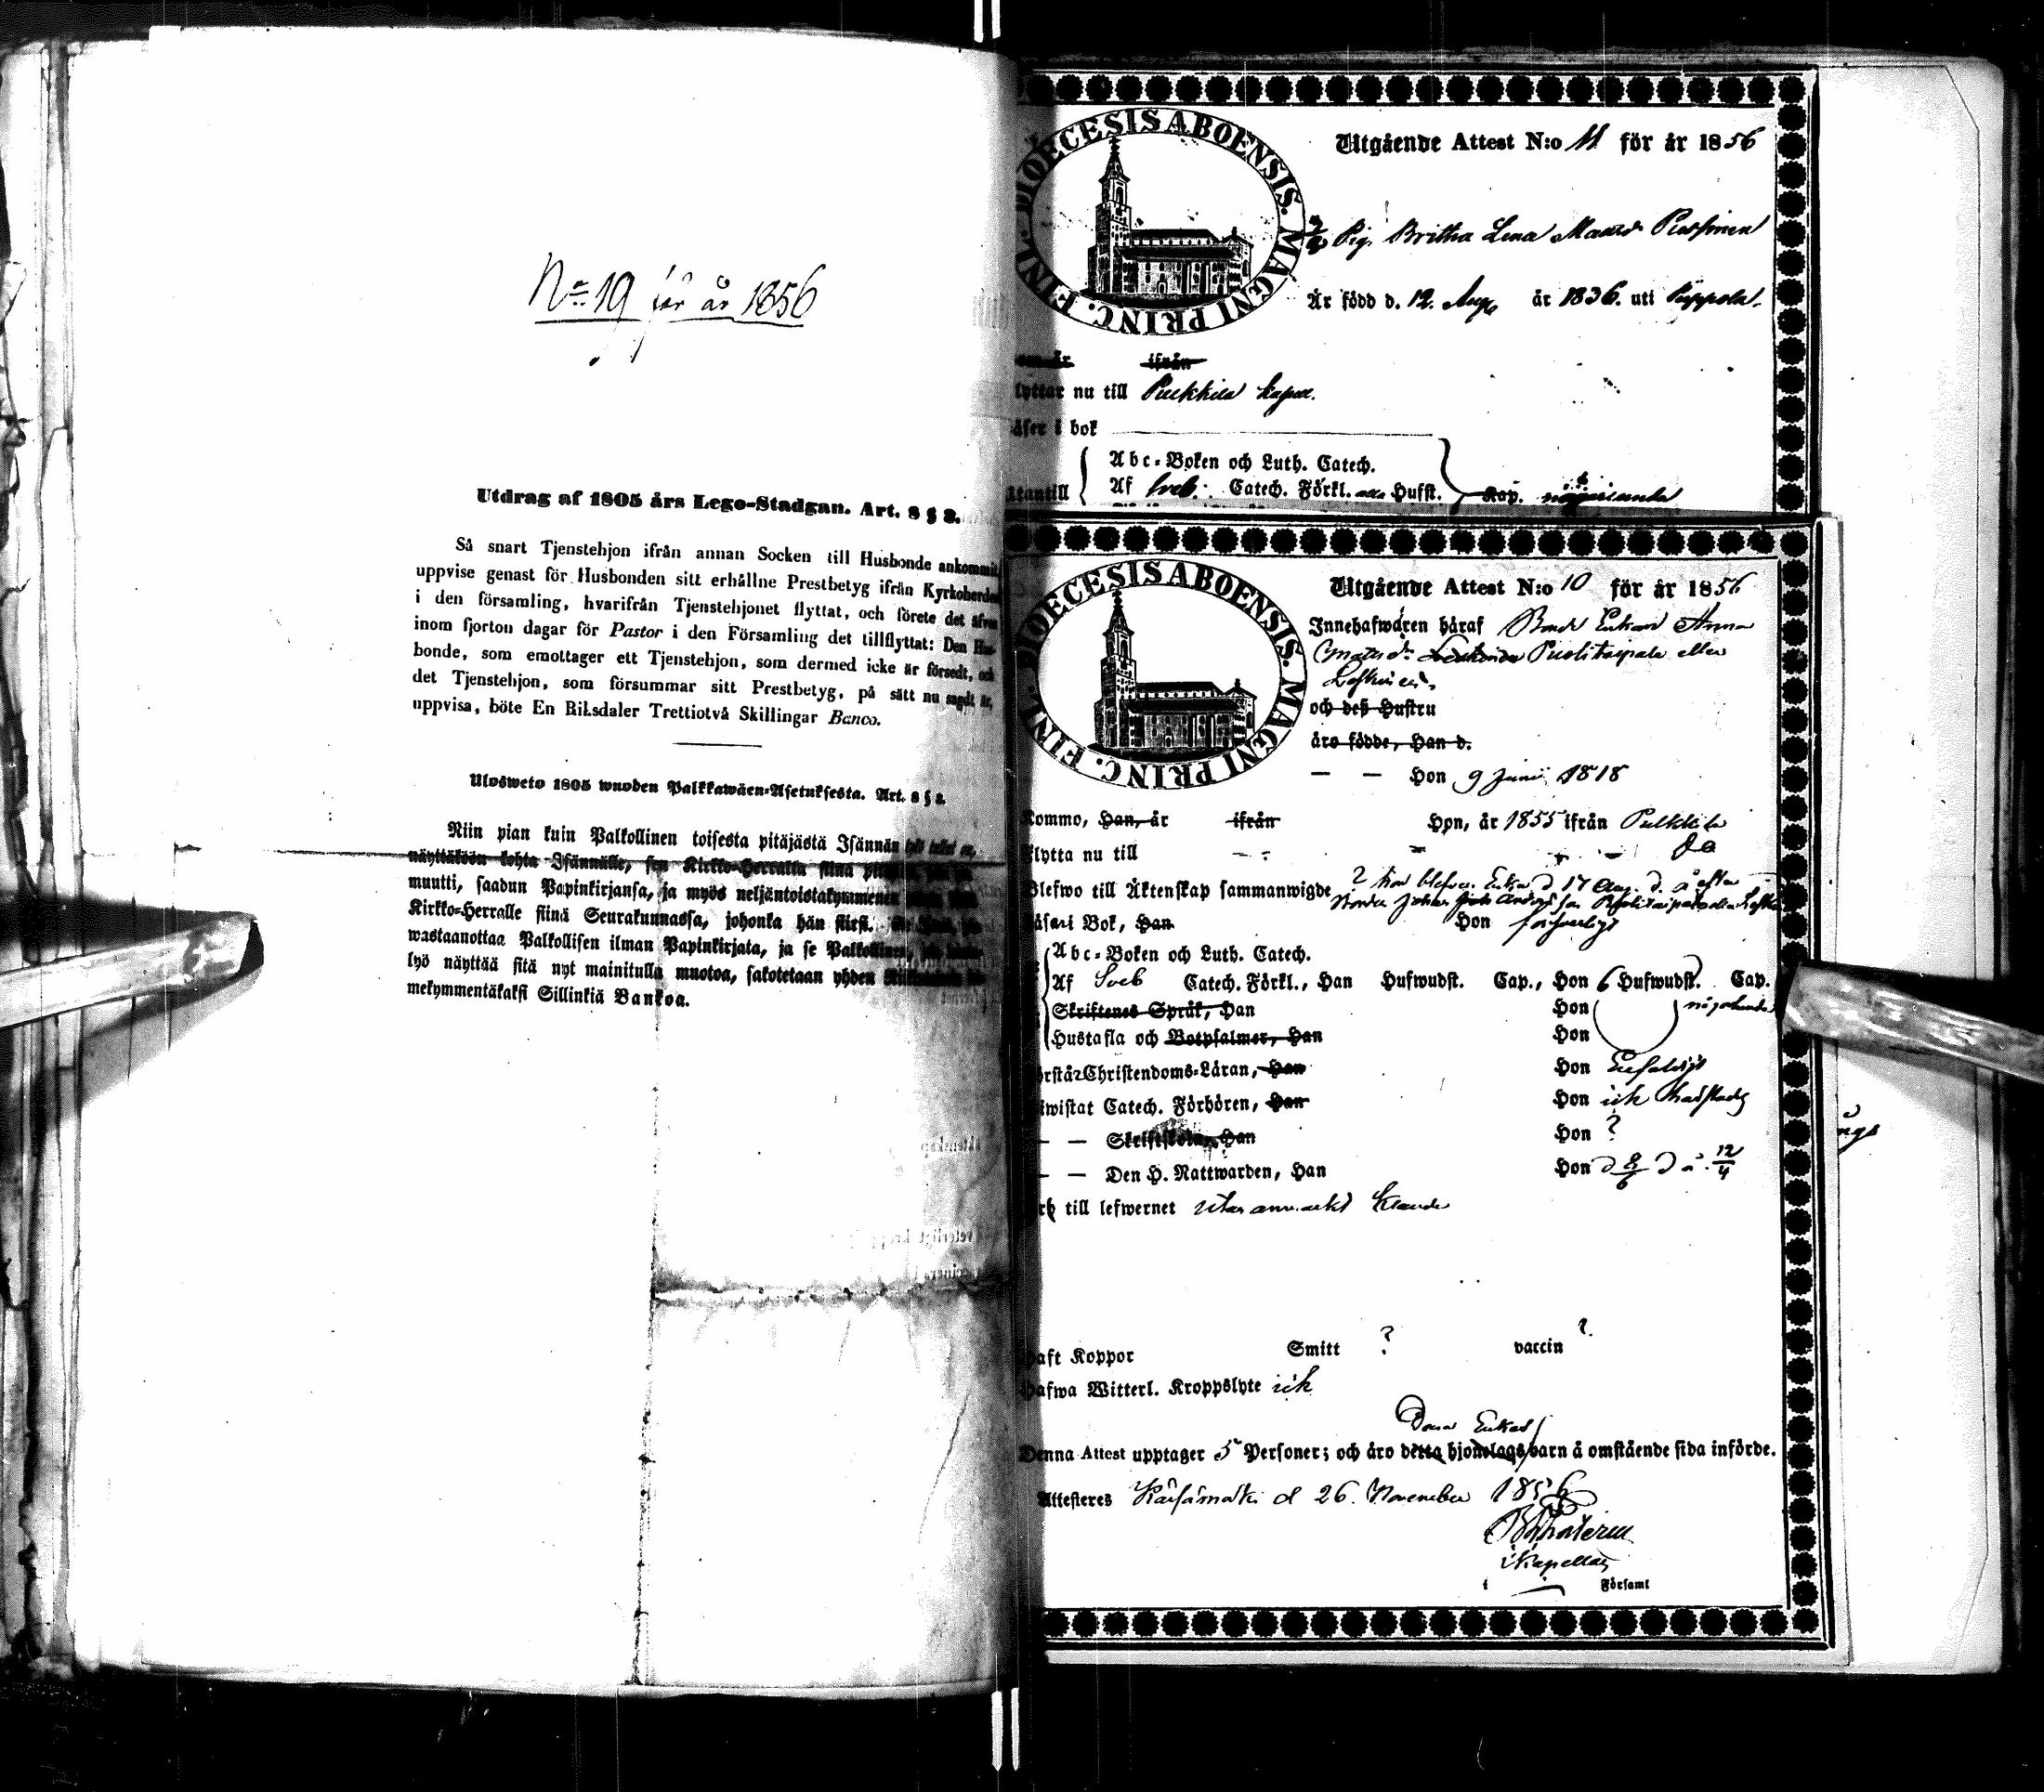 No 19 för år 1856
Utdrag af 1805 års Lego-Stadgan. Art. 8 § 3.
Så snart Tjenstehjon ifrån annan Socken till Husbonde ankommit,
uppvise genast för Husbonden sitt erhållne Prestbetyg ifrån Kyrkoherden
i den församling, hvarifrån Tjenstehjonet flyttat, och förete det äfven
inom fjorton dagar för Pastor i den Församling det tillflyttat: Den Hus-
bonde, som emottager ett Tjenstehjon, som dermed icke är försedt, och
det Tjenstehjon, som försummar sitt Prestbetyg, på sätt nu sagdt är,
uppvisa, böte En Riksdaler Trettiotvå Skillingar Banco.
Ulosweto 1805 wuoden Palkkawäen-Asetuksesta. Art. 8 § 3.
Niin pian kuin Palkollinen toisesta pitäjästä Isännän
näyttäköön kohta Isännälle, sen Kirkko-Herralta siinä
muutti, saadun Papinkirjansa, ja myös neljäntoistakymmenen
Kirkko-Herralle siinä Seurakunnassa, johonka hän siirsi.
wastaanottaa Palkollisen ilman Papinkirjata, ja se Palkollinen,
lyö näyttää sitä nyt mainitulla muotoa, sakotetaan yhden
mekymmentäkaksi Sillinkiä Bankoa.
DIOECESIS ABOENSIS. MAGNI PRINC. FINL.
Utgående Attest N:o 11 för år 1856
Pig. Britha Lena Maard
Är född d. 12. Aug. år 1836. uti Pippola.
ifrån
flyttar nu till Pulkkila kapell.
läser i bok
Abc-Boken och Luth. Catech.
utantill Af Sveb. Catech. Förkl. Hufst. Kap.
DIOECESIS ABOENSIS. MAGNI PRINC. FINL.
Utgående Attest N:o 10 för år 1856
Innehafwaren häraf Bonde Enkan Anna
Puolitaipale eller
och deß Hustru
äro födde, Han d.
— — Hon 9 Junii 1818
Kommo, Han, år ifrån Hon, år 1855 ifrån Pulkkila
Flytta nu till Do
Blefwo till Äktenskap sammanwigde 2 Enka d 17 Aug. d. å efter
Läsa i Bok, Han Hon försvarligt
Abc-Boken och Luth. Catech.
Af Sveb Catech. Förkl., Han Hufwudst. Cap., Hon 6 Hufwudst. Cap.
Skriftenes Språk, Han Hon någorlunda
Hustafla och Botpsalmer, Han Hon
Förstår Christendoms-Läran, Han Hon Enfaldigt
Biwistat Catech. Förhören, Han Hon ick
— — Skriftskola, Han Hon ?
— — Den H. Nattwarden, Han Hon d 8/6 d å 12/4
till lefwernet utan anmärkt klander
Haft Koppor Smitt ? vaccin ?
Hafwa Witterl. Kroppslyte ick
Denna Enkas
Denna Attest upptager 5 Personer; och äro detta hjonelags barn å omstående sida införde.
Attesteres Kärsämäki d 26. November 1856
Kapellan
i Församl